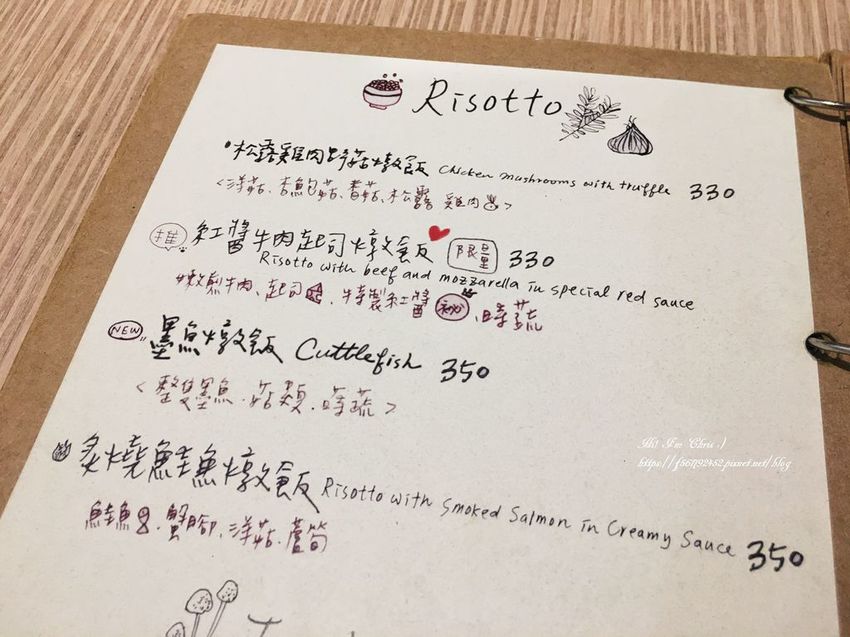 Risotto
松露雞肉野菇燉飯 Chicken mushrooms with truffle 330
<洋菇、杏鮑菇、香菇、松露 雞肉>
推 紅醬牛肉起司燉飯 限量 330
Risotto with beef and mozzarella in special red sauce
嫩煎牛肉、起司、特製紅醬 秘 、時蔬
NEW 墨魚燉飯 Cuttlefish 350
<整隻墨魚、菇類、時蔬>
炙燒鮭魚燉飯 Risotto with smoked Salmon in Creamy Sauce 350
鮭魚、蟹腳、洋菇、蘆筍
Hi! I'm Chris :)
https://f56792452.pixnet.net/blog